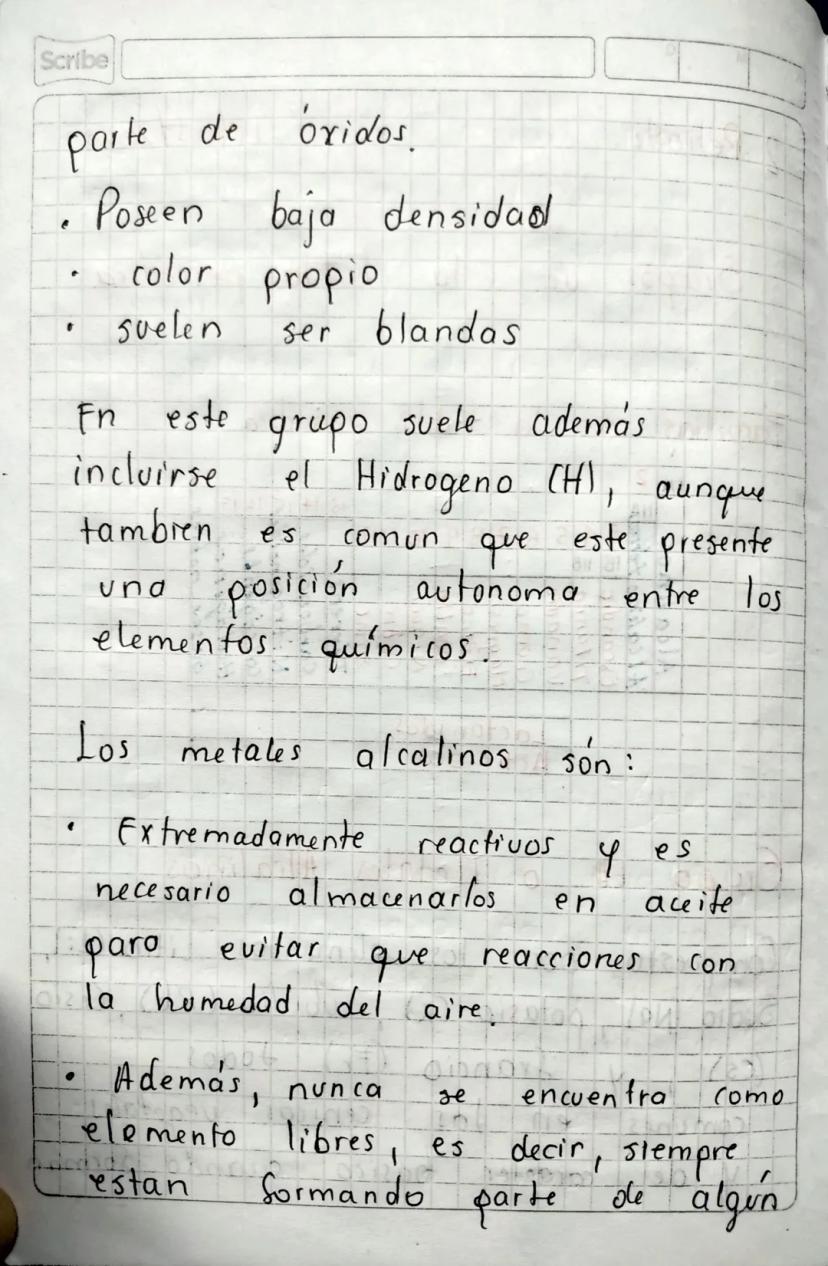 Scribe
parte de óxidos.
. Poseen baja densidad
· color propio
· suelen ser blandas
En este grupo suele además
incluirse el Hidrogeno (H), aunque
tambien es comun que este presente
una posición autonoma entre los
elementos químicos.
Los metales alcalinos són:
· Extremadamente reactivos y es
necesario almacenarlos en aceite
para evitar que reacciones con
la humedad del aire.
· Además, nunca se encuentra como
elemento libres, es decir, siempre
estan formando parte de algún